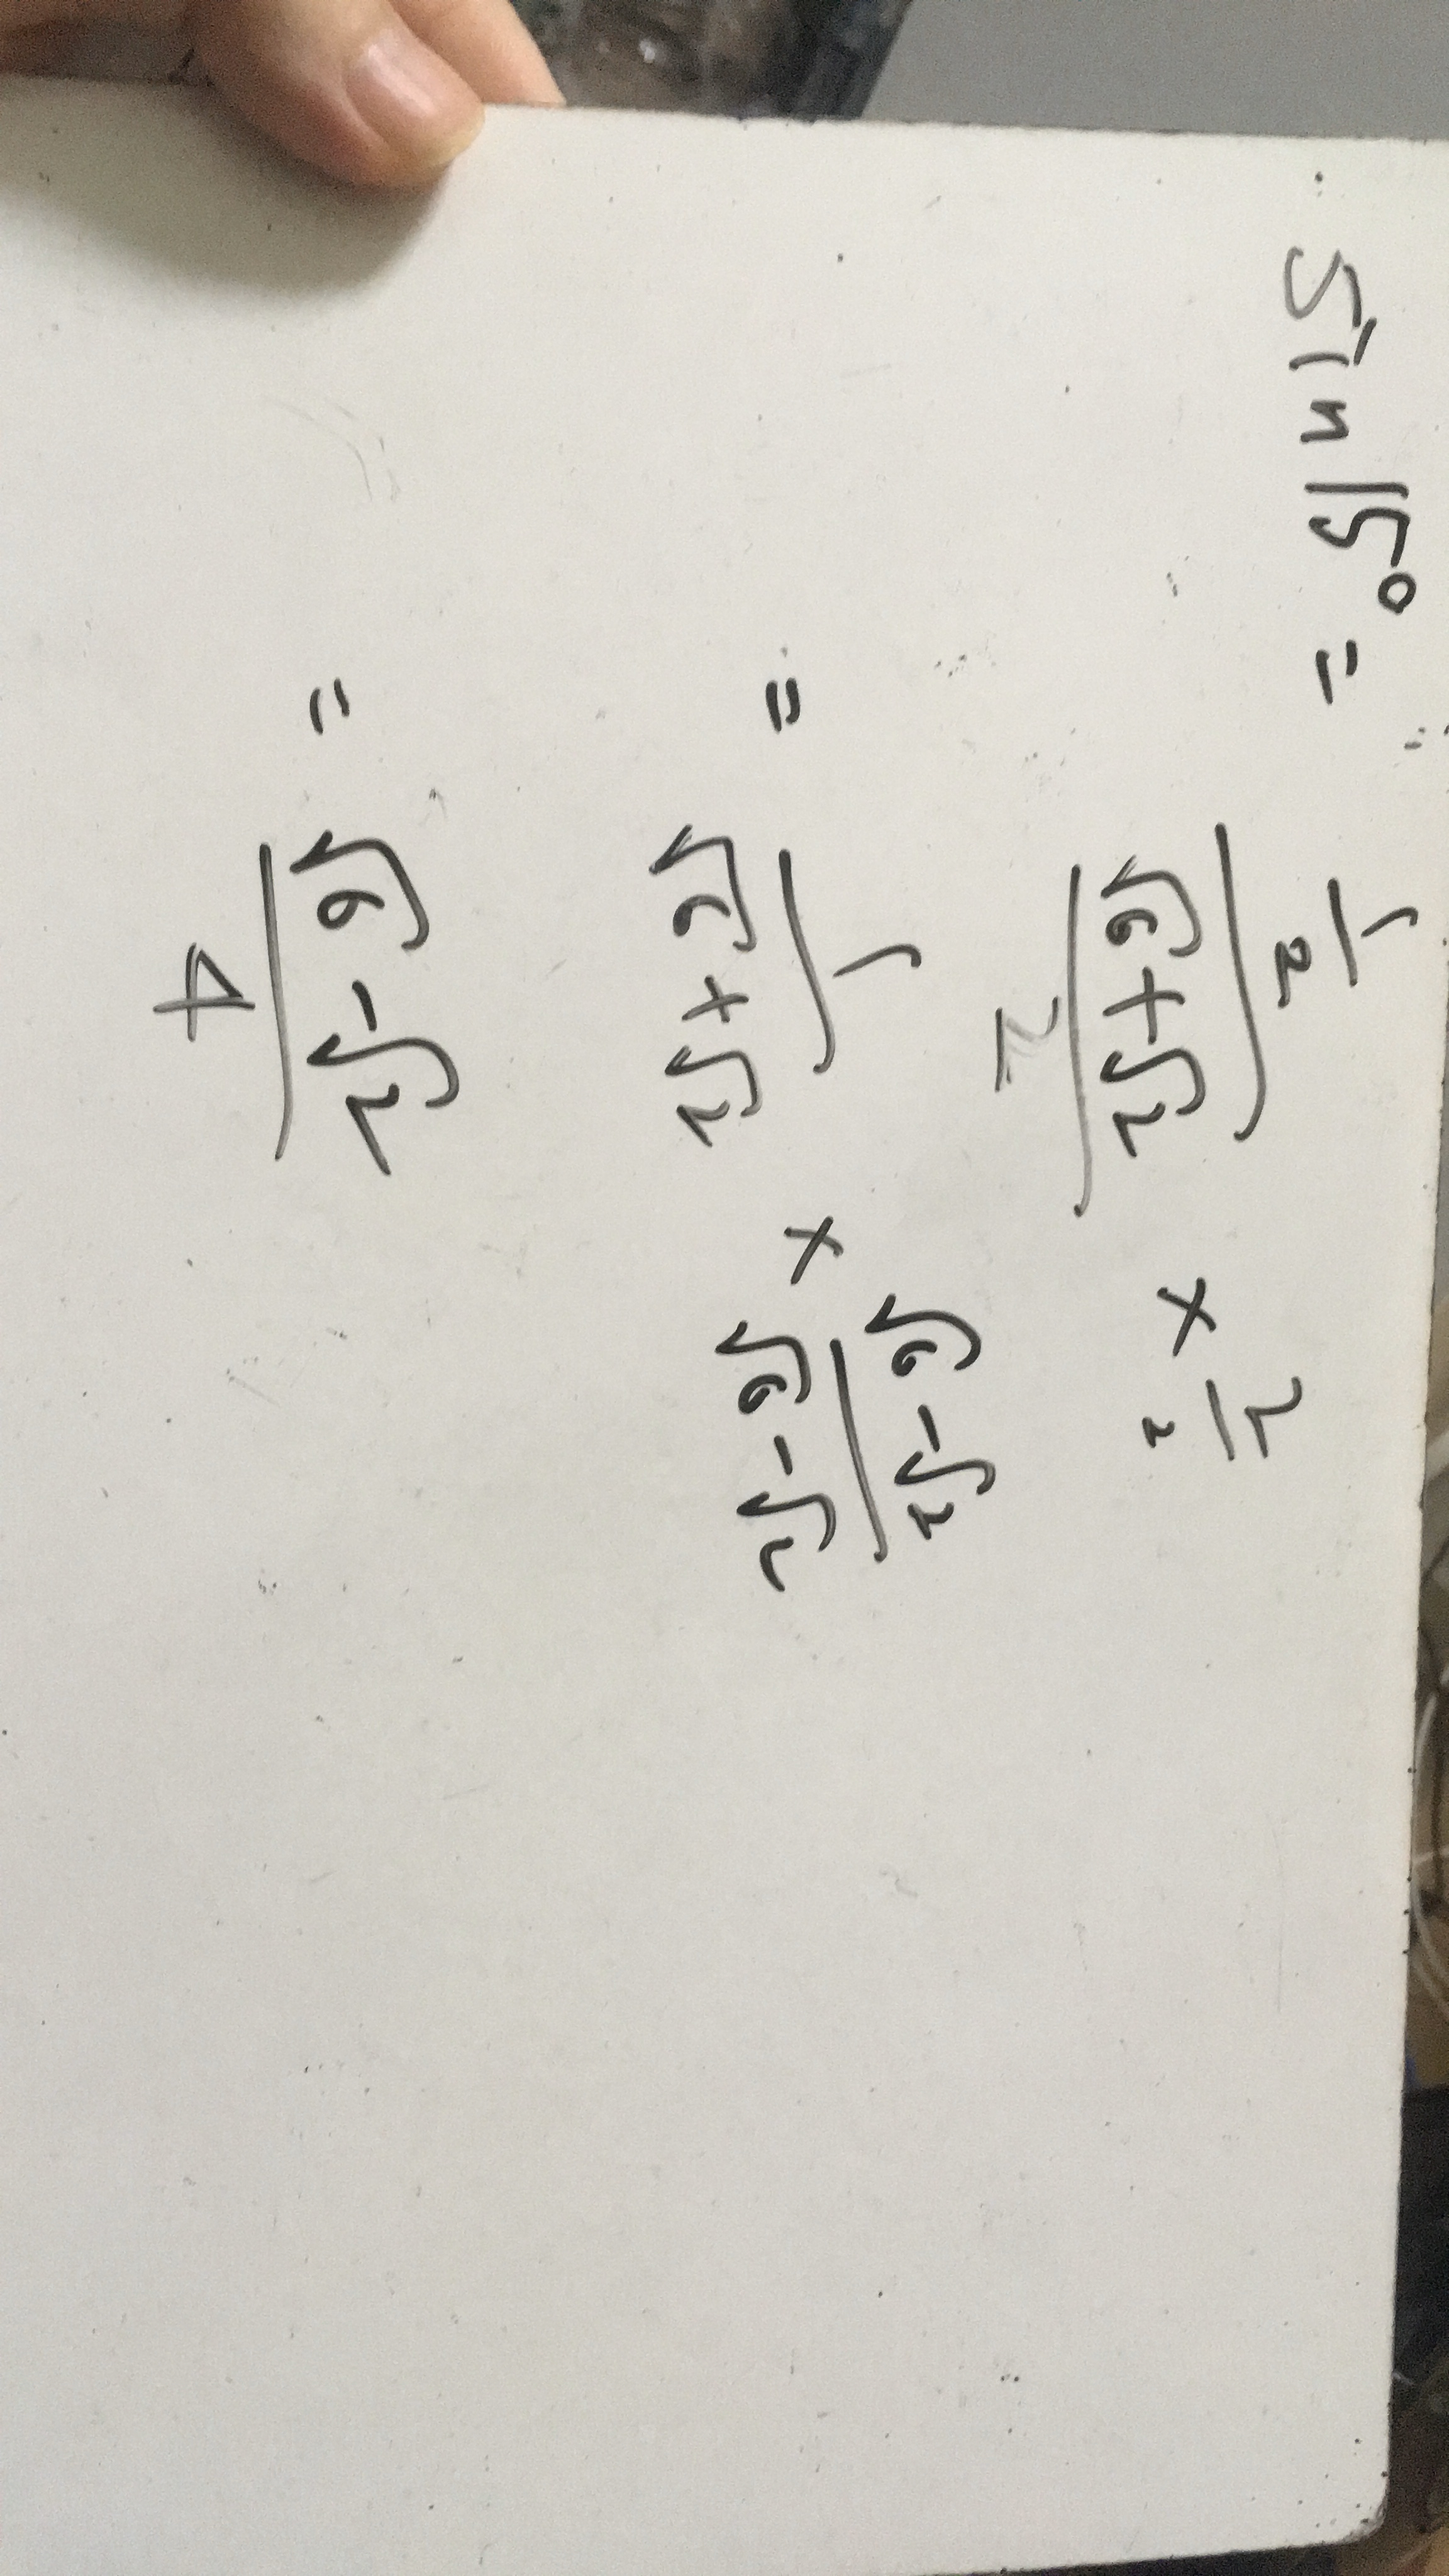 sin 15° = (1/2) / ((√6+√2)/2) × 2/2
= 1/(√6+√2) × (√6-√2)/(√6-√2)
= (√6-√2)/4